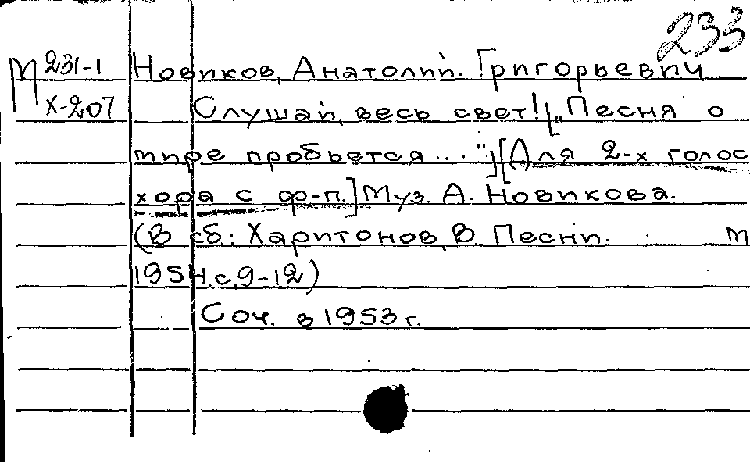 233
М 231-1
Х-207
Новиков, Анатолий Григорьевич
Слушай, весь свет! ["Песня о
мире пробьется..."] [Для 2-х голос
хора с ф-п.] Муз. А. Новикова.
(В сб.: Харитонов, В. Песни. М
1954, с. 9-12)
Соч. в 1953 г.